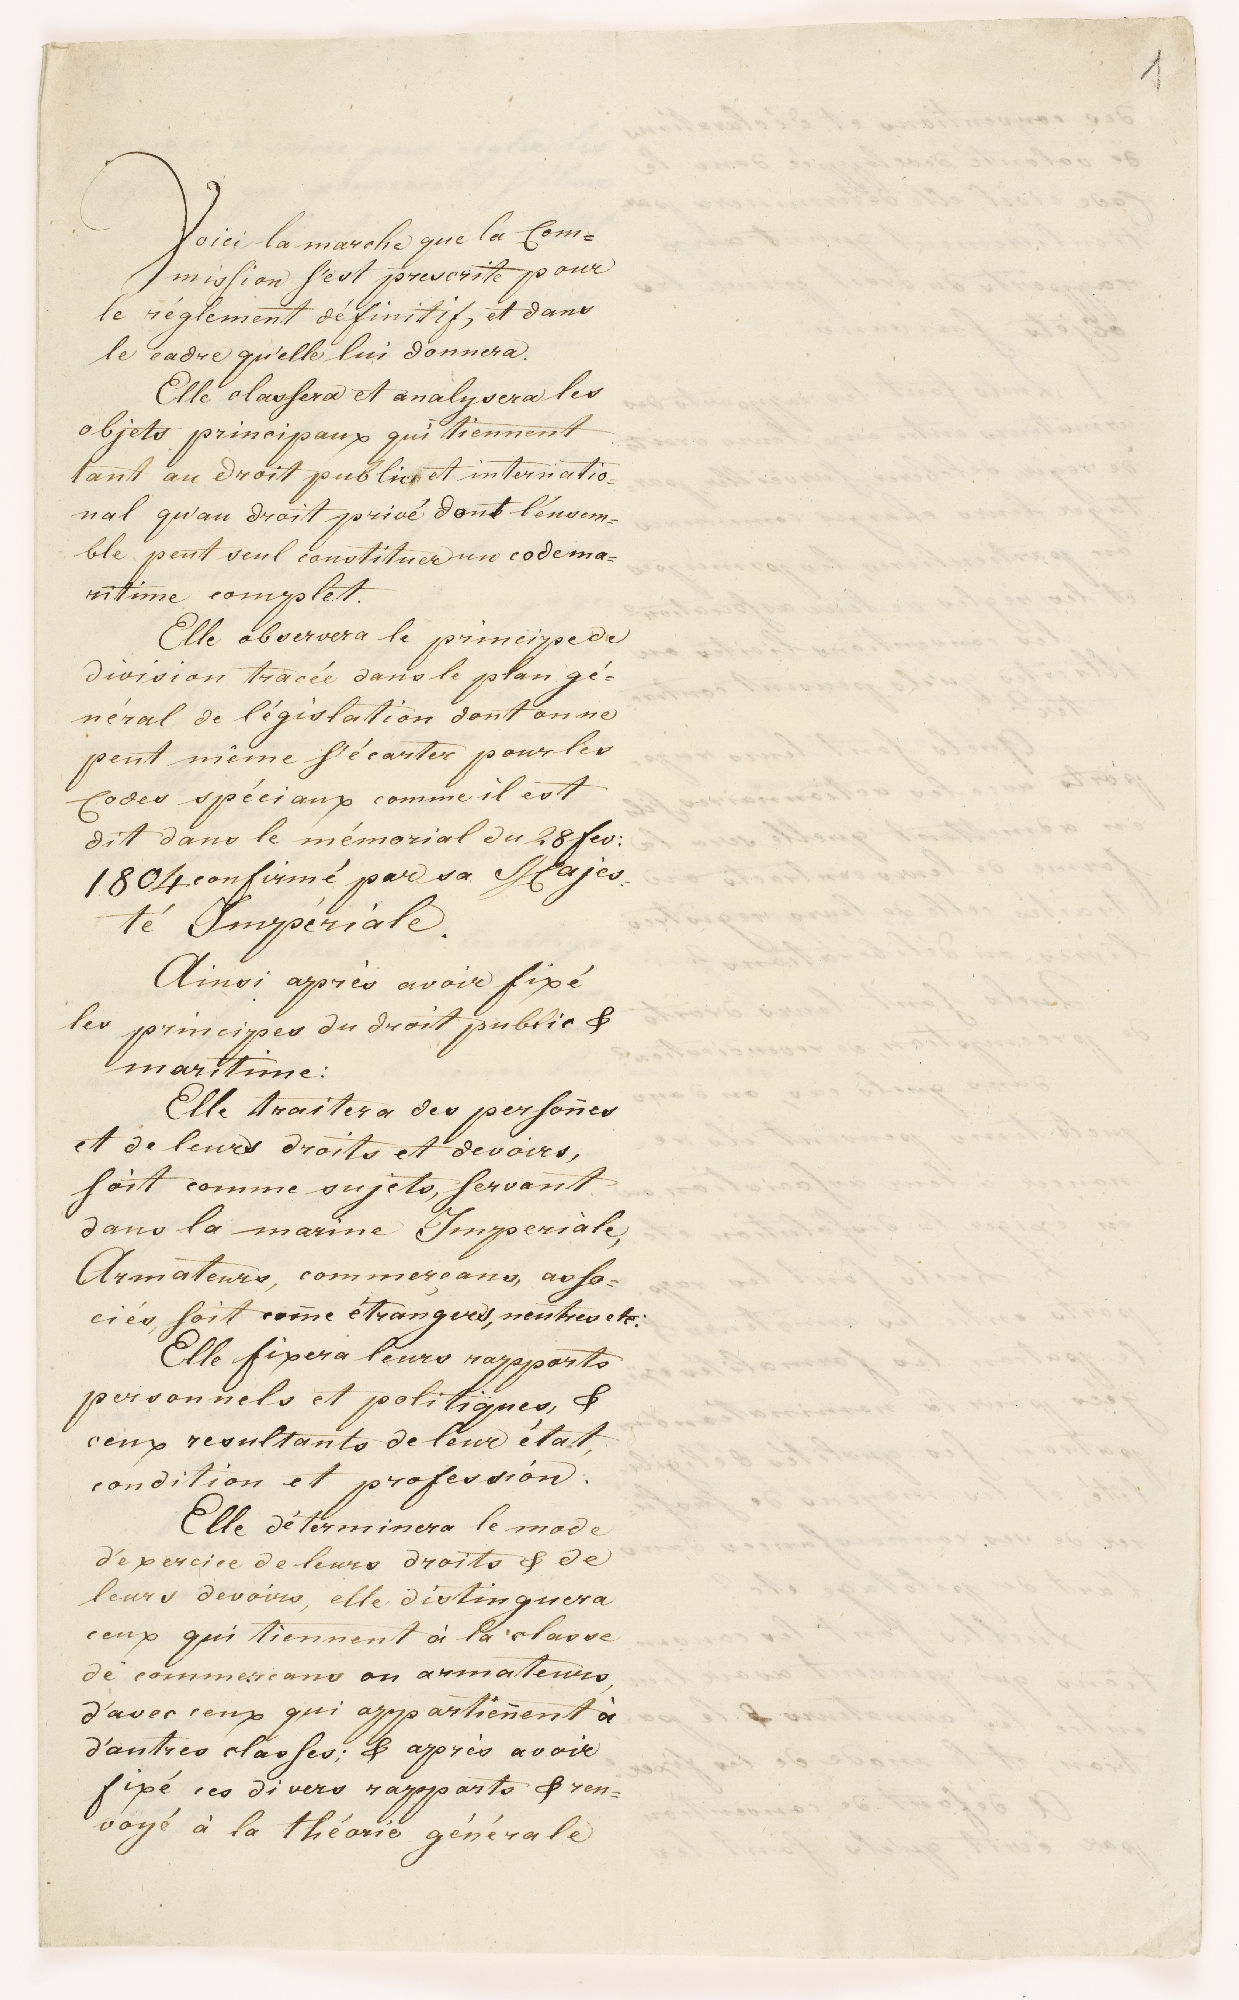 1
Voici la marche que la Com=
mission s'est prescrite pour
le réglement définitif, et dans
le cadre qu'elle lui donnera.
Elle classera et analysera les
objets principaux qui tiennent
tant au droit public et internatio=
nal qu'au droit privé dont l'ensem=
ble peut seul constituer un code ma=
ritime complet.
Elle observera le principe de
division tracée dans le plan gé=
néral de législation dont on ne
peut même s'écarter pour les
Codes spéciaux comme il est
dit dans le mémorial du 28 fev:
1804 confirmé par sa Majes=
té Impériale.
Ainsi après avoir fixé
les principes du droit public &
maritime:
Elle traitera des persoñes
et de leurs droits et devoirs,
soit comme sujets, servant
dans la marine Imperiale,
Armateurs, commerçans, asso=
ciés, soit come̅ étrangers, neutres etc:
Elle fixera leurs rapports
personnels et politiques, &
ceux resultants de leur état,
condition et profession.
Elle déterminera le mode
d'exercice de leurs droits & de
leurs devoirs, elle distinguera
ceux qui tiennent à la classe
de commercans ou armateurs,
d'avec ceux qui appartieñent à
d'autres classes; & après avoir
fixé ces divers rapports & ren=
voyé à la théorie générale